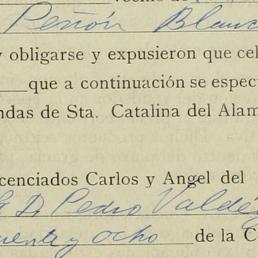 Peñón Blanc
y obligarse y expusieron que cel
que a continuación se especi
ndas de Sta. Catalina del Alam
cenciados Carlos y Angel del
D. Pedro Valdéz
cuenta y ocho de la C